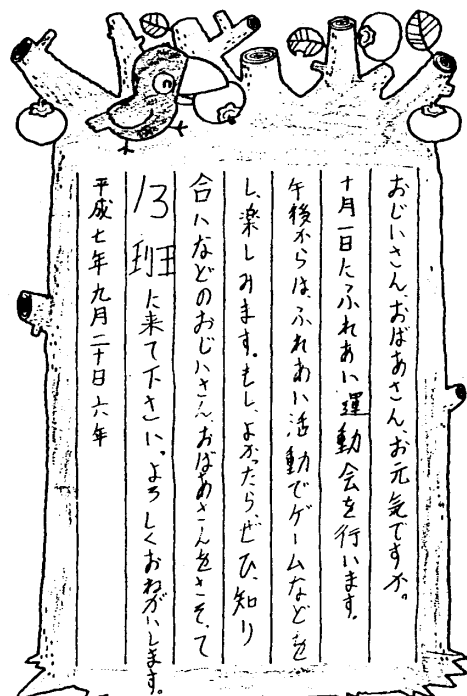 おじいさん、おばあさん、お元気ですか。
十月一日にふれあい運動会を行います。
午後からは、ふれあい活動でゲームなどを
し、楽しみます。もし、よかったら、ぜひ、知り
合いなどのおじいさん、おばあさんをさそって
13班に来て下さい。よろしくおねがいします。
平成七年九月二十日六年